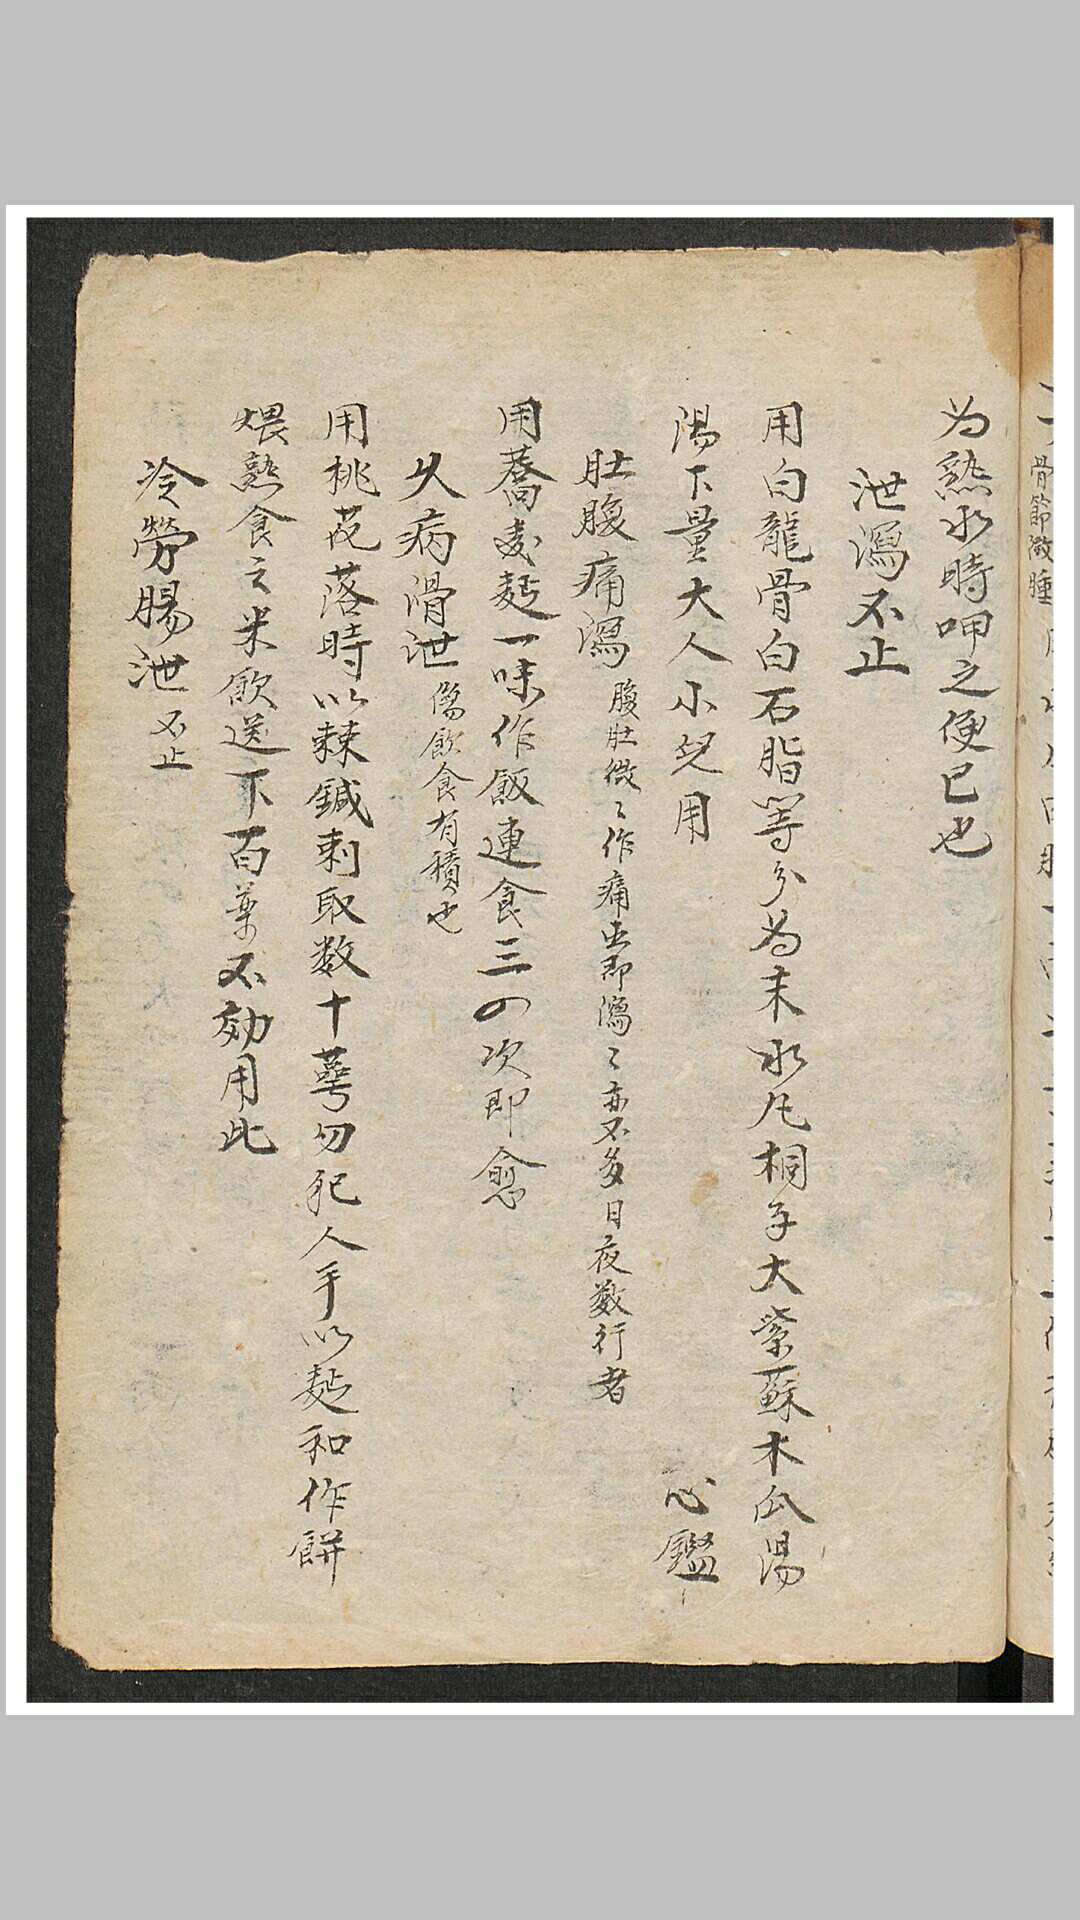 骨節微腫
为熱水時呷之便已也
泄瀉不止
用白龍骨白石脂等分为末水凡桐子大紫蘇木瓜湯
湯下量大人小兒用 心鑑
肚腹痛瀉 腹肚微〻作痛出即瀉〻亦不多日夜數行者
用蕎麦麪一味作飯連食三四次即愈
久病滑泄 傷飲食有積也
用桃花落時以棘鍼刺取数十蕚勿犯人手以麪和作餅
煨熟食之米飲送下百藥不効用此
冷勞腸泄 不止